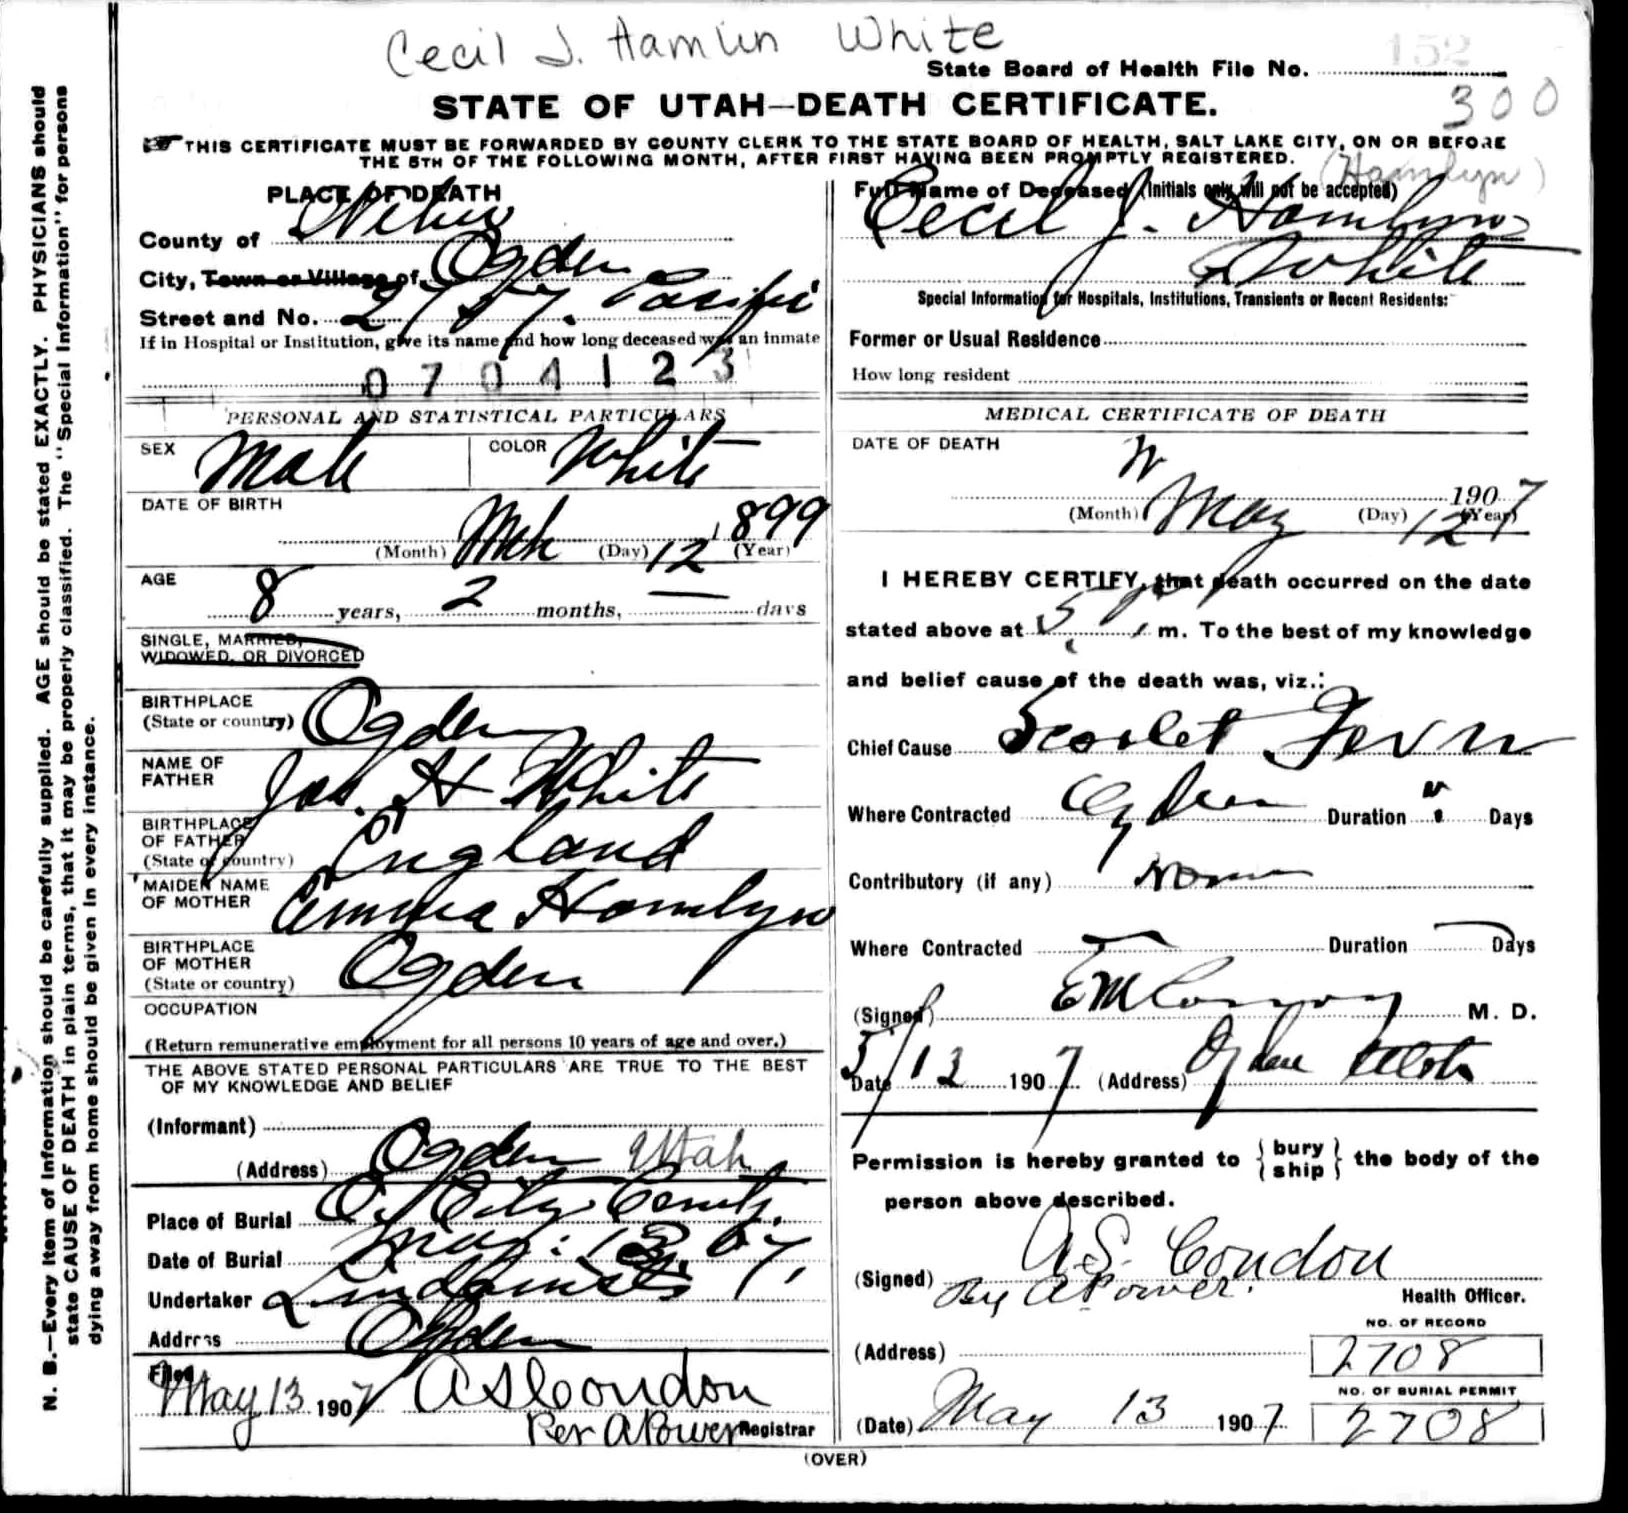 Cecil J. Hamlin White
152
State Board of Health File No.
300
STATE OF UTAH—DEATH CERTIFICATE.
THIS CERTIFICATE MUST BE FORWARDED BY COUNTY CLERK TO THE STATE BOARD OF HEALTH, SALT LAKE CITY, ON OR BEFORE
THE 5TH OF THE FOLLOWING MONTH, AFTER FIRST HAVING BEEN PROMPTLY REGISTERED.
N. B.—Every item of information should be carefully supplied. AGE should be stated EXACTLY. PHYSICIANS should
state CAUSE OF DEATH in plain terms, that it may be properly classified. The "Special Information" for persons
dying away from home should be given in every instance.
PLACE OF DEATH
County of Weber
City, Town or Village of Ogden
Street and No. 2757. Pacific
If in Hospital or Institution, give its name and how long deceased was an inmate
0704123
PERSONAL AND STATISTICAL PARTICULARS
SEX Male COLOR White
DATE OF BIRTH
(Month) Mch (Day) 12 1899 (Year)
AGE
8 years, 2 months, — days
SINGLE, MARRIED,
WIDOWED, OR DIVORCED
BIRTHPLACE
(State or country) Ogden
NAME OF
FATHER Jas. H White
BIRTHPLACE
OF FATHER
(State or country) England
MAIDEN NAME
OF MOTHER Emma Hamlyn
BIRTHPLACE
OF MOTHER
(State or country) Ogden
OCCUPATION
(Return remunerative employment for all persons 10 years of age and over.)
THE ABOVE STATED PERSONAL PARTICULARS ARE TRUE TO THE BEST
OF MY KNOWLEDGE AND BELIEF
(Informant)
(Address) Ogden Utah
Place of Burial O. City Cemty.
Date of Burial May: 13 07,
Undertaker Lindquist
Address Ogden
Filed
May 13 1907 A S Condon
Per A Power Registrar
(Hamlyn)
Full Name of Deceased (Initials only will not be accepted)
Cecil J. Hamlyn
White
Special Information for Hospitals, Institutions, Transients or Recent Residents:
Former or Usual Residence
How long resident
MEDICAL CERTIFICATE OF DEATH
DATE OF DEATH
1907
(Month) May (Day) 12 (Year)
I HEREBY CERTIFY, that death occurred on the date
stated above at 5 P. m. To the best of my knowledge
and belief cause of the death was, viz.:
Chief Cause Scarlet Fever
Where Contracted Ogden Duration Days
Contributory (if any) None
Where Contracted — Duration — Days
(Signed) E M Conroy M. D.
Date 5/13 1907. (Address) Ogden Utah
Permission is hereby granted to { bury ship } the body of the
person above described.
(Signed) A S. Condon
By A Power. Health Officer.
(Address)
NO. OF RECORD
2708
NO. OF BURIAL PERMIT
(Date) May 13 1907 2708
(OVER)